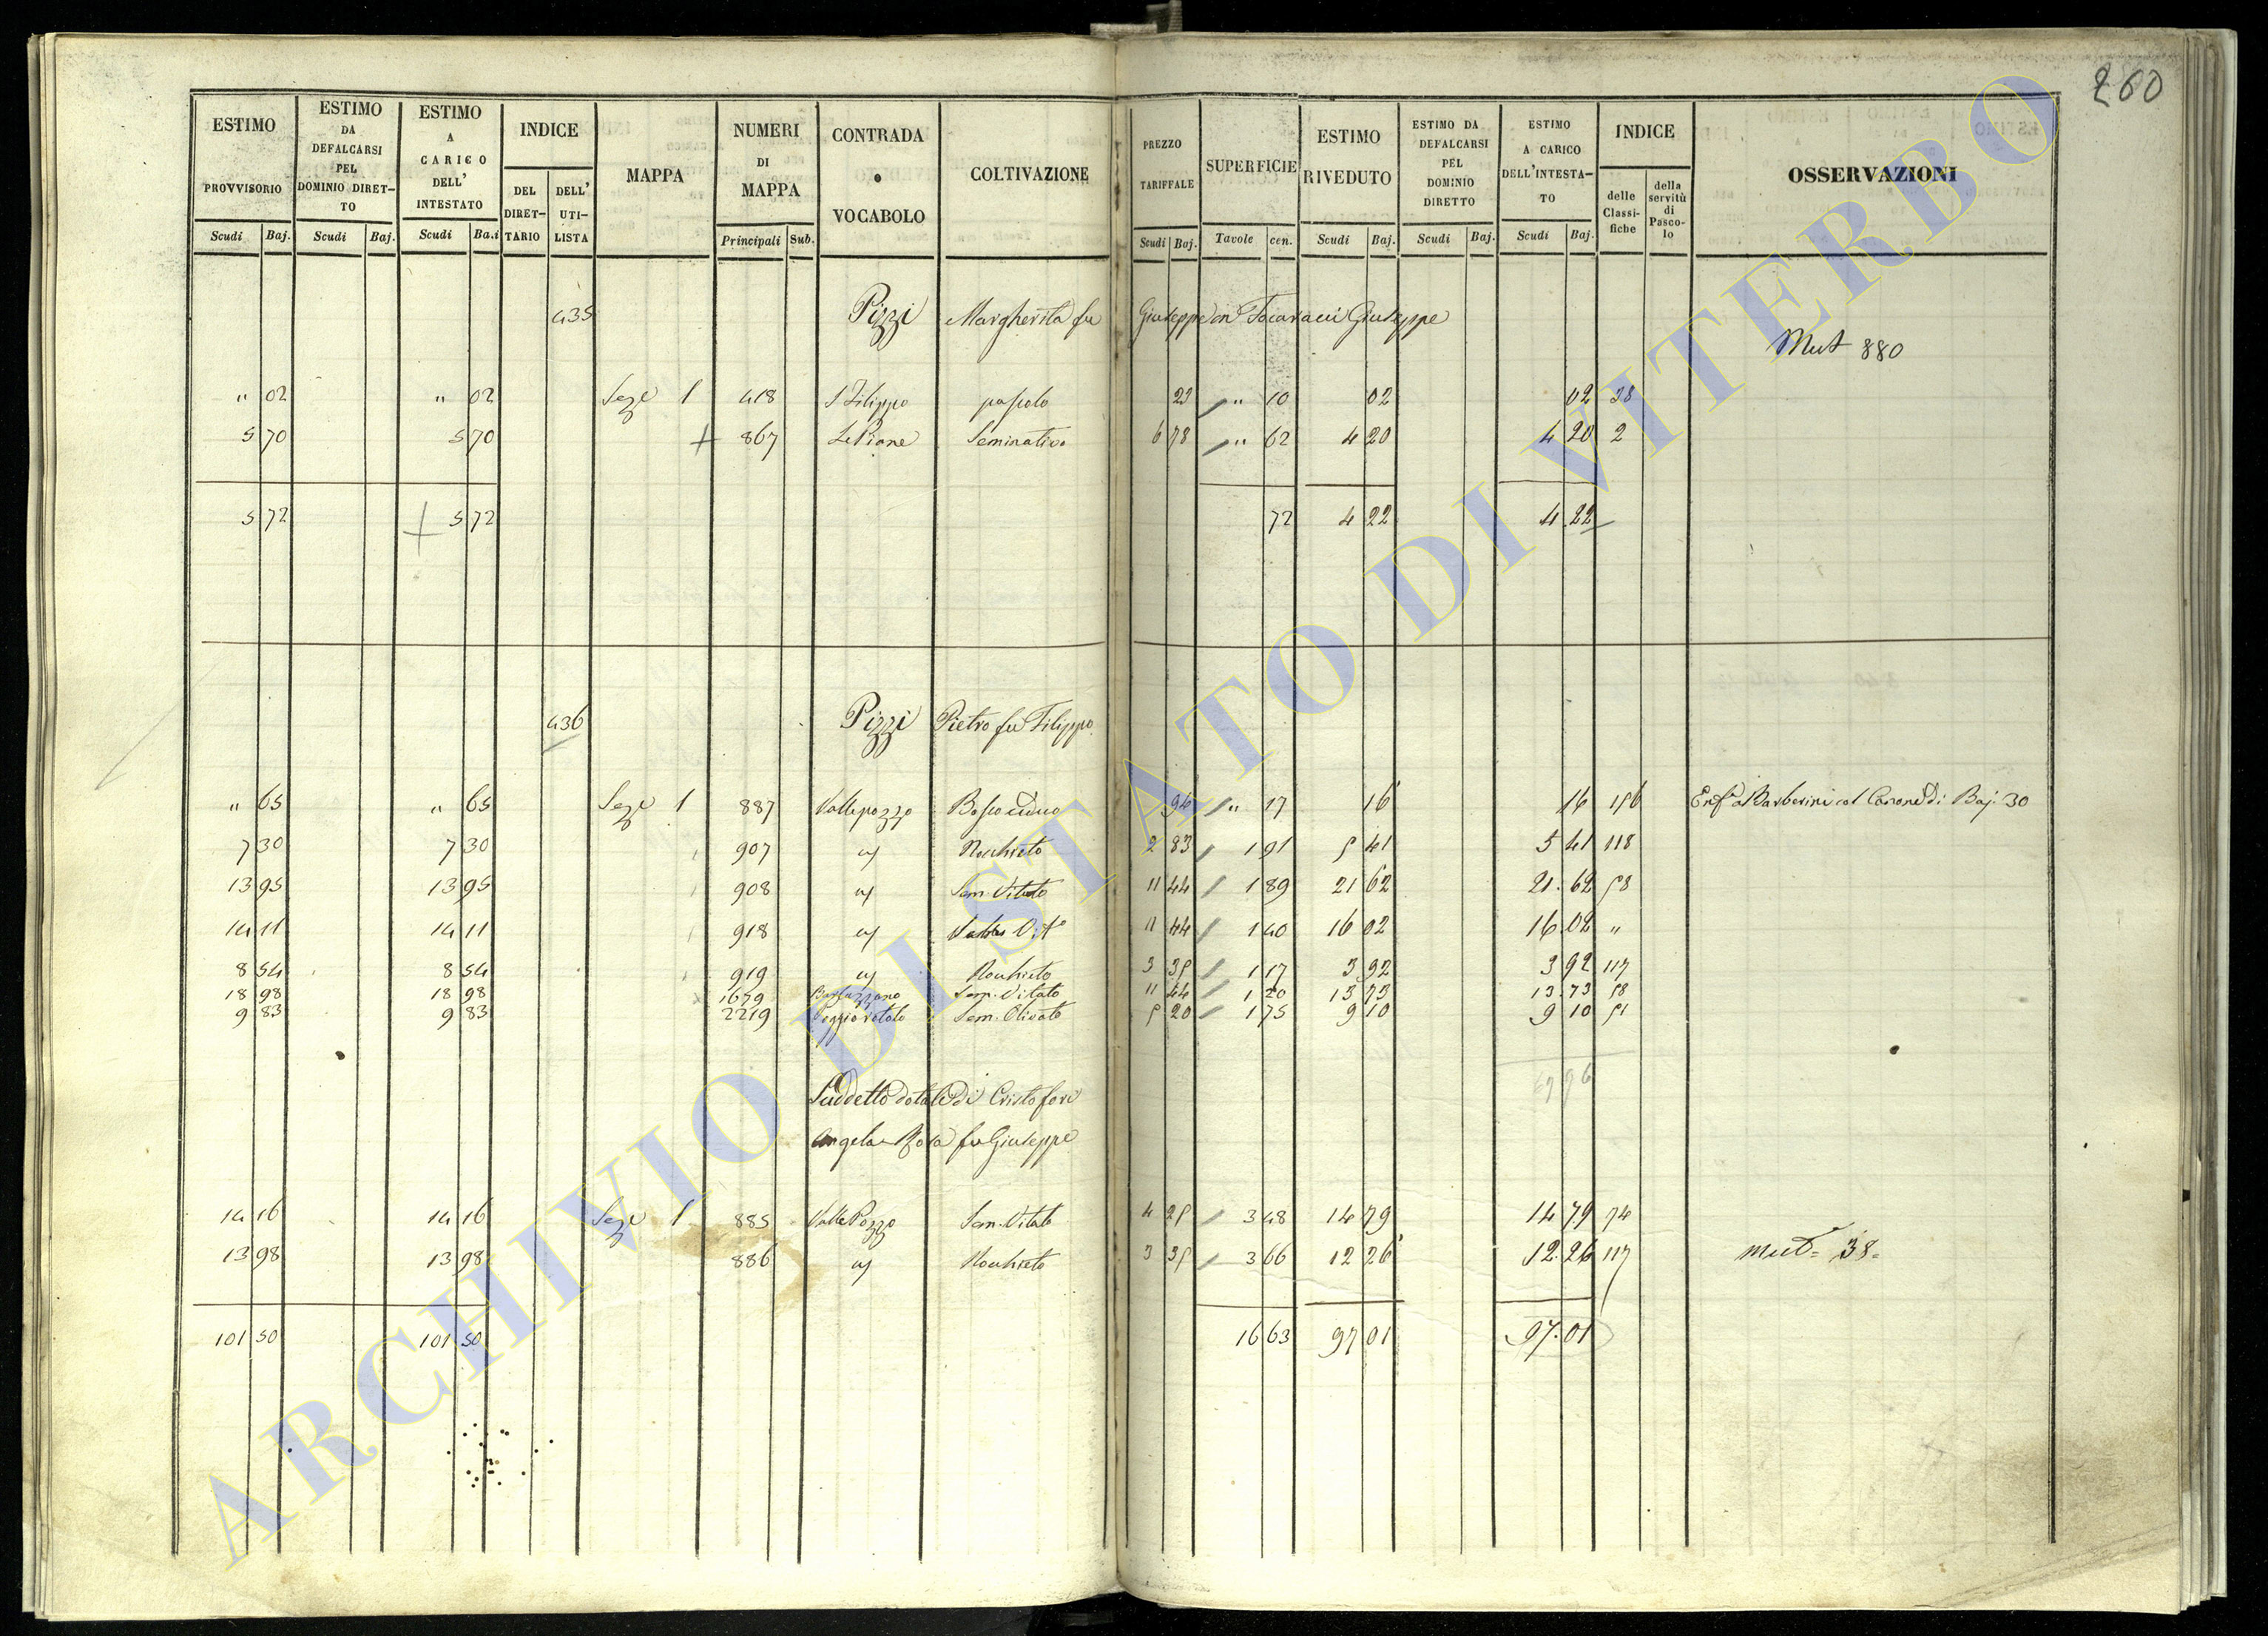 260
ESTIMO PROVVISORIO Scudi Baj. ESTIMO DA DEFALCARSI PEL DOMINIO DIRETTO Scudi Baj. ESTIMO A CARICO DELL' INTESTATO Scudi Baj. INDICE DEL DIRETTARIO DELL' UTILISTA MAPPA NUMERI DI MAPPA Principali Sub. CONTRADA o VOCABOLO COLTIVAZIONE PREZZO TARIFFALE Scudi Baj. SUPERFICIE Tavole cen. ESTIMO RIVEDUTO Scudi Baj. ESTIMO DA DEFALCARSI PEL DOMINIO DIRETTO Scudi Baj. ESTIMO A CARICO DELL'INTESTATO Scudi Baj. INDICE delle Classifiche della servitù di Pascolo OSSERVAZIONI
435 Pizzi Margherita fu Giuseppe in Giuseppe
Mut 880
" 02 " 02 Seze 1 418 S Filippo pascolo 23 " 10 02 02 38
5 70 5 70 + 867 Le Piane Seminativo 6 78 " 62 4 20 4 20 2
5 72 5 72 72 4 22 4 22
436 Pizzi Pietro fu Filippo
" 65 " 65 Seze 1 887 Vallepozzo Bosco ceduo 94 " 17 16 16 156 Enf.a Barberini col Canone di Baj. 30
7 30 7 30 907 " Nocchieto 2 83 1 91 5 41 5 41 118
13 95 13 95 908 " Sem. Vitato 11 44 1 89 21 62 21. 62 58
14 11 14 11 918 " Vit° 11 44 1 40 16 02 16 02 "
8 54 8 54 919 " Nocchieto 3 35 1 17 3 92 3 92 117
18 98 18 98 1679 Sem. Vitato 11 44 1 20 13 73 13. 73 58
9 83 9 83 2219 Sem. Olivato 5 20 1 75 9 10 9 10 51
Suddetto dotale di Cristofori
Angela Rosa fu Giuseppe
14 16 14 16 Seze 1 885 Valle Pozzo Sem. Vitato 4 25 3 48 14 79 14 79 74
13 98 13 98 886 " Nocchieto 3 35 3 66 12 26 12. 26 117 Mut= 38=
101 50 101 50 16 63 97 01 97. 01
ARCHIVIO DI STATO DI VITERBO